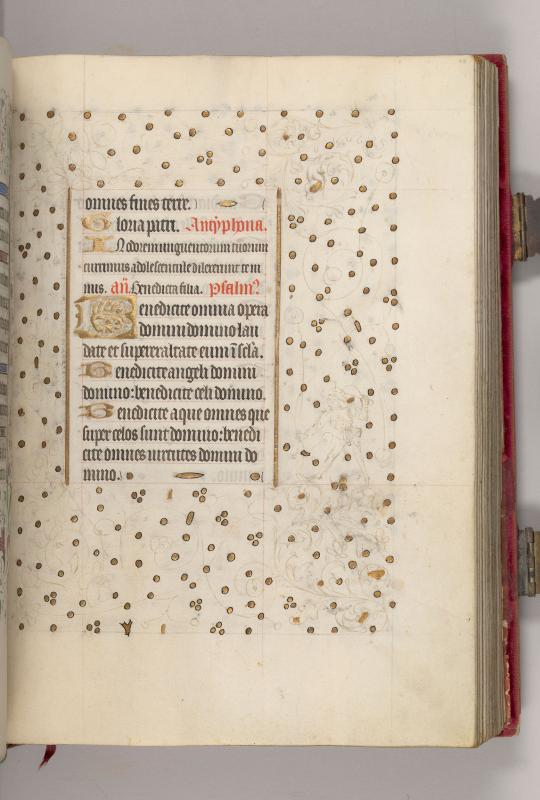 omnes fines terre.
Gloria patri. Antyphona.
In odorem unguentorum tuorum
currimus adolescentule dilexerunt te ni
mis. añ. Benedicta filia. Psalm9
Benedicite omnia opera
domini domino lau
date et superexaltate eum ī sc̄la.
Benedicite angeli domini
domino: benedicite celi domino.
Benedicite aque omnes que
super celos sunt domino: benedi
cite omnes virtutes domini do
mino.